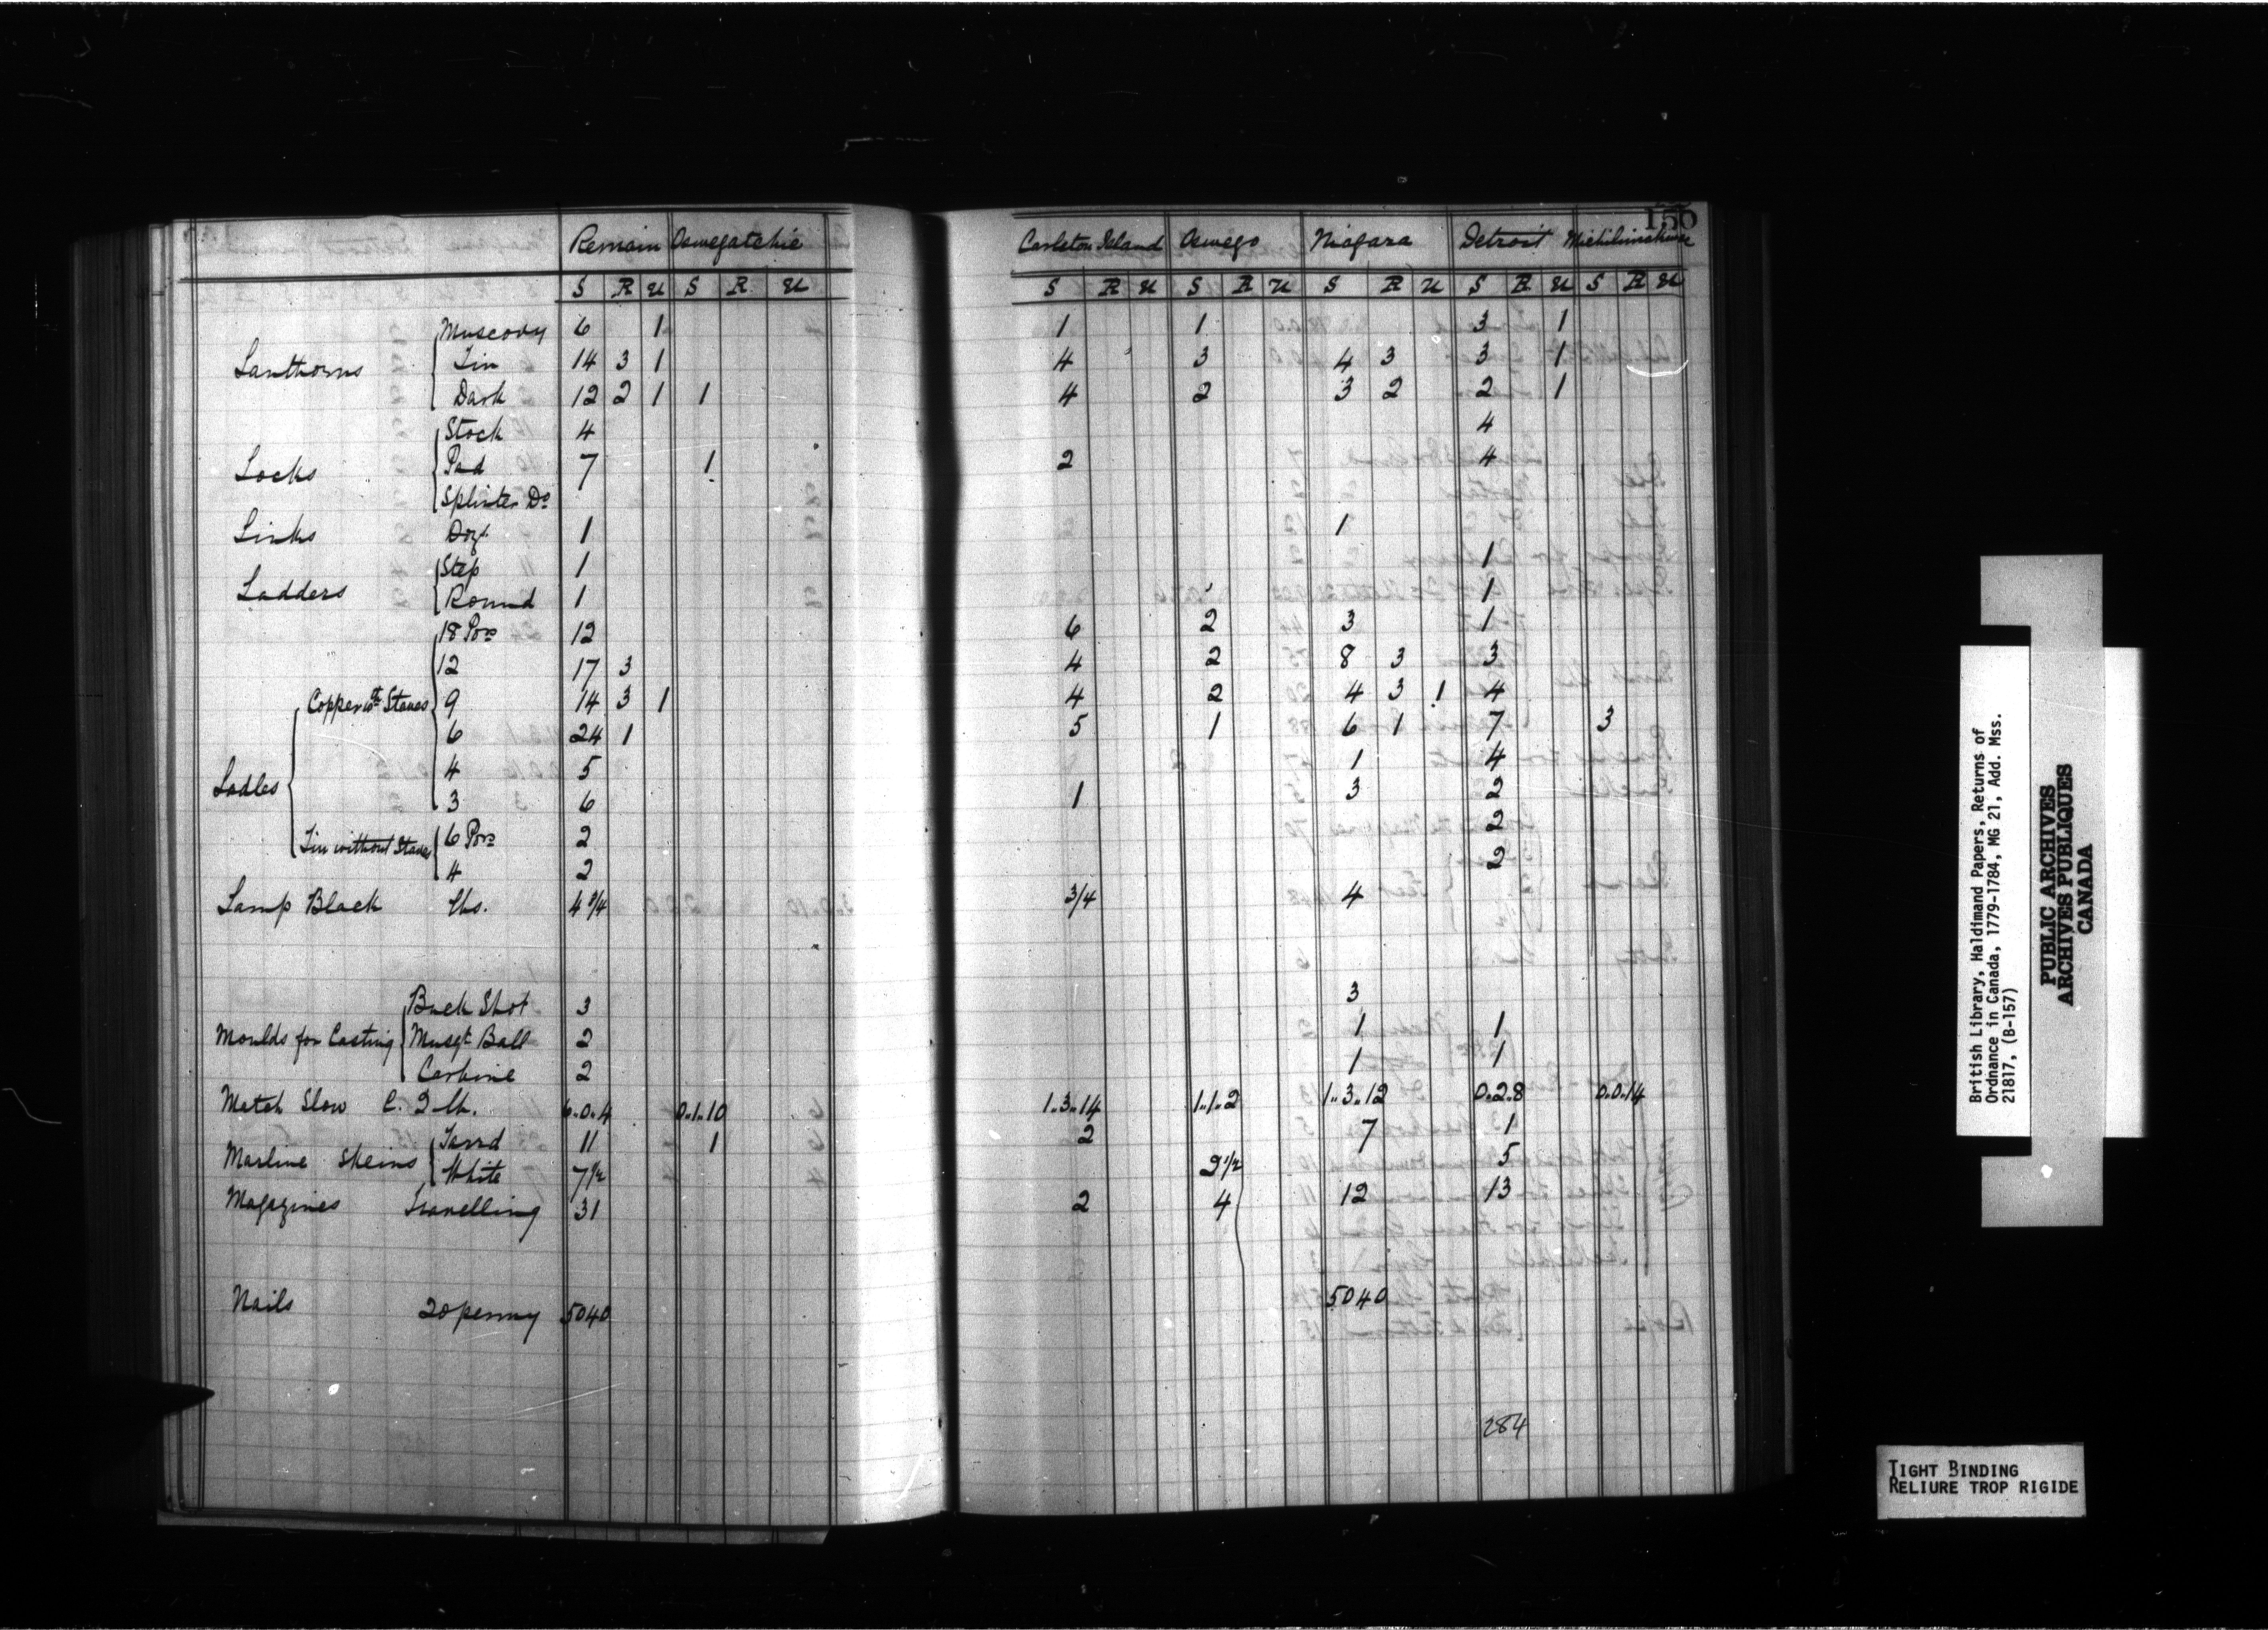 150
Remain Oswegatchie Carleton Island Oswego Niagara Detroit Michilimackinac
S R U S R U S R U S R U S R U S R U S R U
Muscovy 6 1 1 1 3 1
Lanthorns Tin 14 3 1 4 3 4 3 3 1
Dark 12 2 1 1 4 2 3 2 2 1
Stock 4 4
Locks Pad 7 1 2 4
Splinter Do
Links Dozn 1 1
Step 1 1
Ladders Round 1 1
18 Pors 12 6 2 3 1
12 17 3 4 2 8 3 3
Copper wth Staves 9 14 3 1 4 2 4 3 1 4
6 24 1 5 1 6 1 7 3
4 5 1 4
Ladles 3 6 1 3 2
Tin without Staves 6 Pors 2 2
4 2 2
Lamp Black lbs. 4 3/4 3/4 4
Buck Shot 3 3
Moulds for Casting Musqt Ball 2 1 1
Carbine 2 1 1
Match Slow C. Q lb. 6.0.4 0.1.10 1.3.14 1.1.2 1.3.12 0.2.8 0.0.14
Marline Skeins Tarrd 11 1 2 7 1
White 7 1/2 2 1/2 5
Magazines Travelling 31 2 4 12 13
Nails 20 penny 5040 5040
284
British Library, Haldimand Papers, Returns of
Ordnance in Canada, 1779-1784, MG 21, Add. Mss.
21817, (B-157)
PUBLIC ARCHIVES
ARCHIVES PUBLIQUES
CANADA
TIGHT BINDING
RELIURE TROP RIGIDE